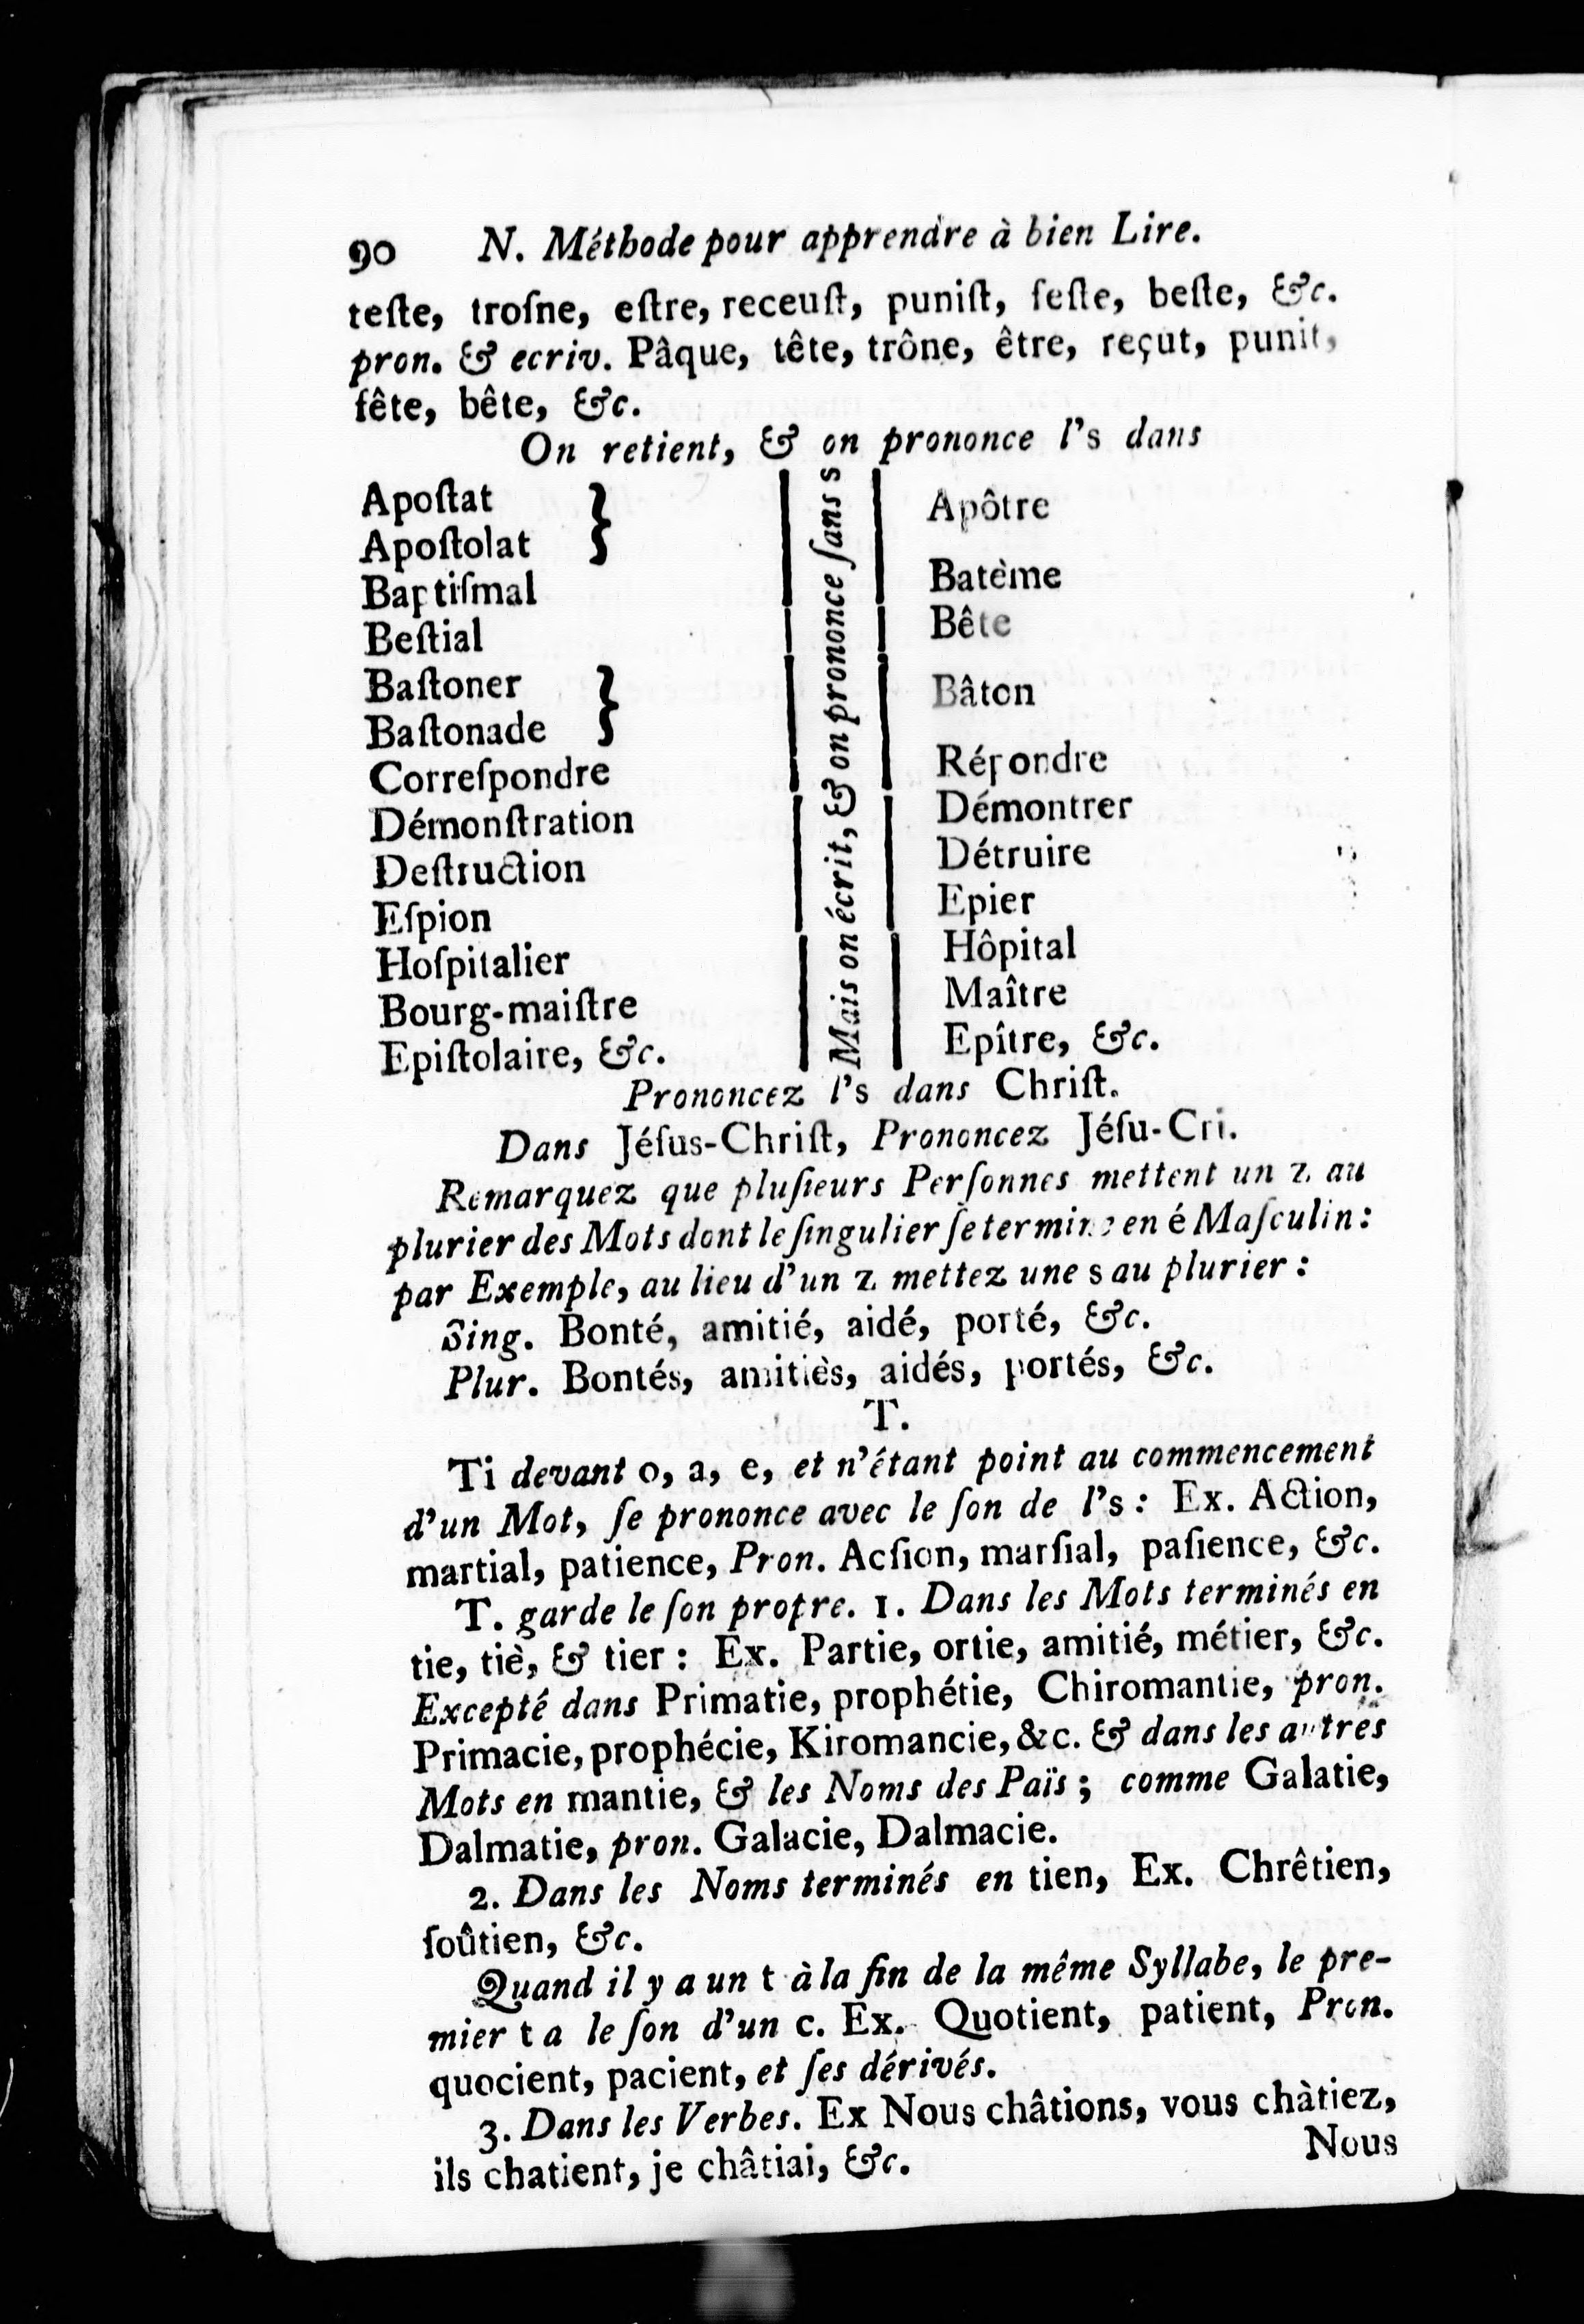 90 N. Méthode pour apprendre à bien Lire.
teſte, troſne, eſtre, receuſt, puniſt, feſte, beſte, &c.
pron. & ecriv. Pâque, tête, trône, être, reçut, punit,
fête, bête, &c.
On retient, & on prononce l's dans
Apoſtat
Apoſtolat
Baptiſmal
Beſtial
Baſtoner
Baſtonade
Correſpondre
Démonſtration
Deſtruction
Eſpion
Hoſpitalier
Bourg-maiſtre
Epiſtolaire, &c.
Mais on écrit, & on prononce ſans s
Apôtre
Batème
Bête
Bâton
Répondre
Démontrer
Détruire
Epier
Hôpital
Maître
Epître, &c.
Prononcez l's dans Chriſt.
Dans Jéſus-Chriſt, Prononcez Jéſu-Cri.
Remarquez que pluſieurs Perſonnes mettent un z au
plurier des Mots dont le ſingulier ſe termine en é Maſculin:
par Exemple, au lieu d'un z mettez une s au plurier:
Sing. Bonté, amitié, aidé, porté, &c.
Plur. Bontés, amitiès, aidés, portés, &c.
T.
Ti devant o, a, e, et n'étant point au commencement
d'un Mot, ſe prononce avec le ſon de l's: Ex. Action,
martial, patience, Pron. Acſion, marſial, paſience, &c.
T. garde le ſon propre. 1. Dans les Mots terminés en
tie, tiè, & tier: Ex. Partie, ortie, amitié, métier, &c.
Excepté dans Primatie, prophétie, Chiromantie, pron.
Primacie, prophécie, Kiromancie, &c. & dans les autres
Mots en mantie, & les Noms des Païs; comme Galatie,
Dalmatie, pron. Galacie, Dalmacie.
2. Dans les Noms terminés en tien, Ex. Chrêtien,
ſoûtien, &c.
Quand il y a un t à la fin de la même Syllabe, le pre-
mier t a le ſon d'un c. Ex. Quotient, patient, Pron.
quocient, pacient, et ſes dérivés.
3. Dans les Verbes. Ex Nous châtions, vous chàtiez,
ils chatient, je châtiai, &c.
Nous